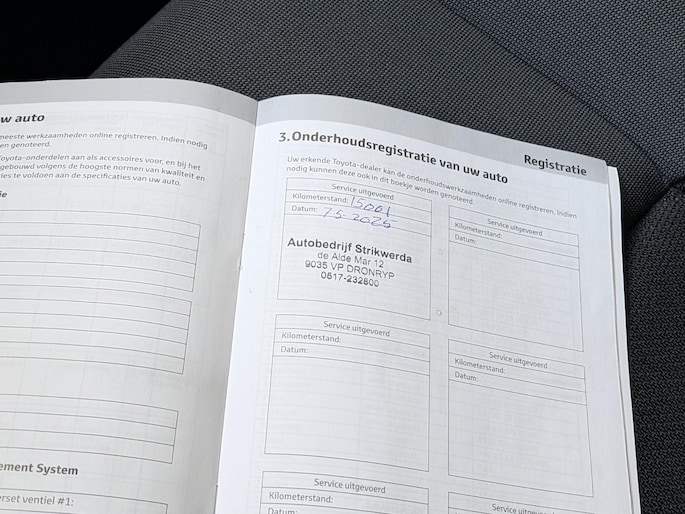 w auto
meeste werkzaamheden online registreren. Indien nodig
en genoteerd.
Toyota-onderdelen aan als accessoires voor, en bij het
gebouwd volgens de hoogste normen van kwaliteit en
ies te voldoen aan de specificaties van uw auto.
ie
ement System
erset ventiel #1:
Registratie
3. Onderhoudsregistratie van uw auto
Uw erkende Toyota-dealer kan de onderhoudswerkzaamheden online registreren. Indien
nodig kunnen deze ook in dit boekje worden genoteerd.
Service uitgevoerd
Kilometerstand: 15001
Datum: 7-5-2025
Autobedrijf Strikwerda
de Alde Mar 12
9035 VP DRONRYP
0517-232800
Service uitgevoerd
Kilometerstand:
Datum:
Service uitgevoerd
Kilometerstand:
Datum:
Service uitgevoerd
Kilometerstand:
Datum:
Service uitgevoerd
Kilometerstand:
Datum:
Service uitgevoerd